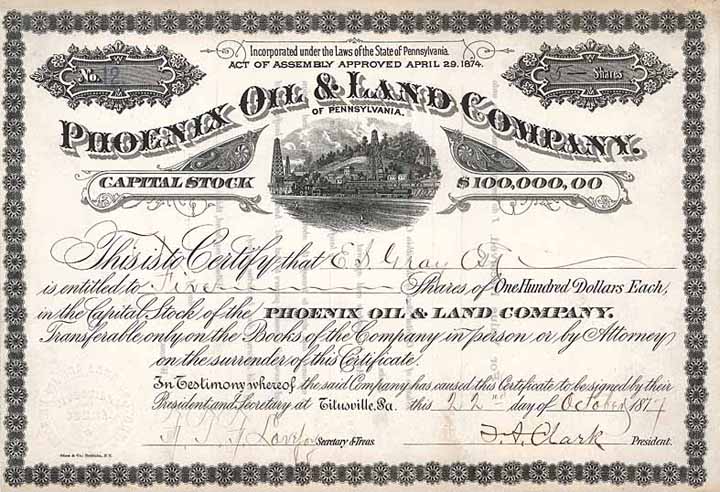 Incorporated under the Laws of the State of Pennsylvania.
ACT OF ASSEMBLY APPROVED APRIL 29. 1874.
No. 12
5 Shares
PHOENIX OIL & LAND COMPANY.
OF PENNSYLVANIA.
CAPITAL STOCK $100,000,00
This is to Certify that E. S. Gray
is entitled to Five Shares of One Hundred Dollars Each,
in the Capital Stock of the PHOENIX OIL & LAND COMPANY.
Transferable only on the Books of the Company in person or by Attorney
on the surrender of this Certificate.
In Testimony whereof, the said Company has caused this Certificate to be signed by their
President and Secretary at Titusville, Pa. this 22nd day of October 1877
Secretary & Treas. President.